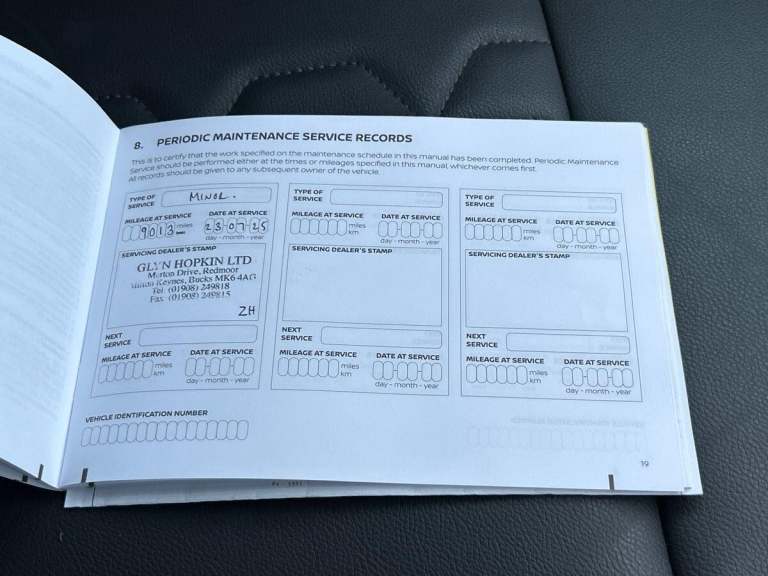 8. PERIODIC MAINTENANCE SERVICE RECORDS
This is to certify that the work specified on the maintenance schedule in this manual has been completed. Periodic Maintenance
Service should be performed either at the times or mileages specified in this manual, whichever comes first.
All records should be given to any subsequent owner of the vehicle.
TYPE OF
SERVICE
MINOR.
MILEAGE AT SERVICE DATE AT SERVICE
9013 miles 23-07-25
km
day - month - year
SERVICING DEALER'S STAMP
GLYN HOPKIN LTD
Marton Drive, Redmoor
Milton Keynes, Bucks MK6 4AG
Tel: (01908) 249818
Fax: (01908) 249815
ZH
NEXT
SERVICE
MILEAGE AT SERVICE DATE AT SERVICE
miles
km
day - month - year
TYPE OF
SERVICE
MILEAGE AT SERVICE DATE AT SERVICE
miles
km
day - month - year
SERVICING DEALER'S STAMP
NEXT
SERVICE
MILEAGE AT SERVICE DATE AT SERVICE
miles
km
day - month - year
TYPE OF
SERVICE
MILEAGE AT SERVICE DATE AT SERVICE
miles
km
day - month - year
SERVICING DEALER'S STAMP
NEXT
SERVICE
MILEAGE AT SERVICE DATE AT SERVICE
miles
km
day - month - year
VEHICLE IDENTIFICATION NUMBER
19